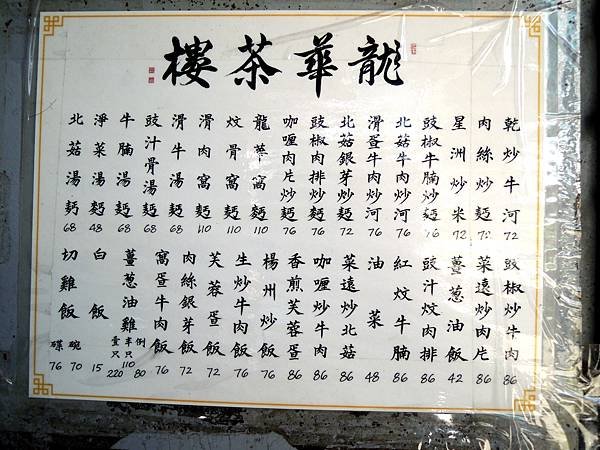 龍華茶樓
乾炒牛河 72
肉絲炒麵 72
星洲炒米 72
豉椒牛腩炒麵 76
北菇牛肉炒河 76
滑蛋牛肉炒河 76
北菇銀芽炒麵 72
豉椒肉排炒麵 76
咖喱肉片炒麵 76
龍華窩麵 110
炆骨窩麵 110
滑肉窩麵 110
滑牛湯麵 68
豉汁骨湯麵 68
牛腩湯麵 68
淨菜湯麵 48
北菇湯麵 68
豉椒炒牛肉 86
菜遠炒肉片 86
薑葱油飯 42
豉汁炆肉排 86
紅炆牛腩 86
油菜 48
菜遠炒北菇 86
咖喱炒牛肉 86
香煎芙蓉蛋 86
楊州炒飯 76
生炒牛肉飯 76
芙蓉蛋飯 72
肉絲銀芽飯 72
窩蛋牛肉飯 76
薑葱油雞 例 80 半只 110 壹只 220
白飯 15
切雞飯 碗 70 碟 76